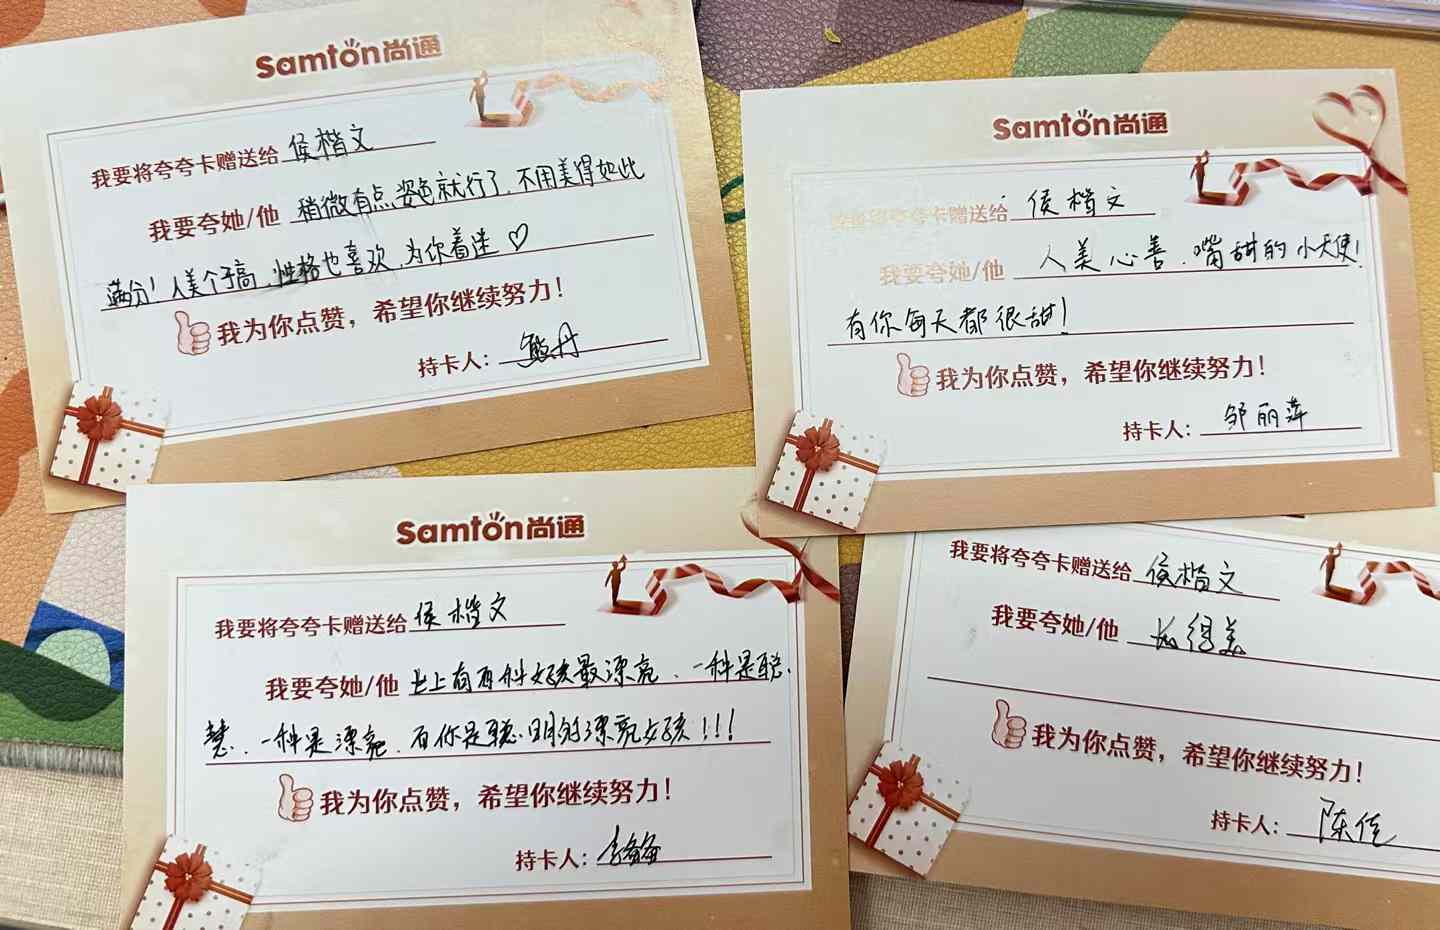 Samton尚通
我要将夸夸卡赠送给 侯楷文
我要夸她/他 稍微有点姿色就行了、不用美得如此
满分！人美个子高、性格也喜欢、为你着迷♡
我为你点赞，希望你继续努力！
持卡人：丹
Samton尚通
我要将夸夸卡赠送给 侯楷文
我要夸她/他 人美心善、嘴甜的小天使！
有你每天都很甜！
我为你点赞，希望你继续努力！
持卡人：邹丽萍
Samton尚通
我要将夸夸卡赠送给 侯楷文
我要夸她/他 世上有两种女孩最漂亮、一种是聪
慧、一种是漂亮、而你是聪明的漂亮女孩！！！
我为你点赞，希望你继续努力！
持卡人：
我要将夸夸卡赠送给 侯楷文
我要夸她/他 长得美
我为你点赞，希望你继续努力！
持卡人：陈佳